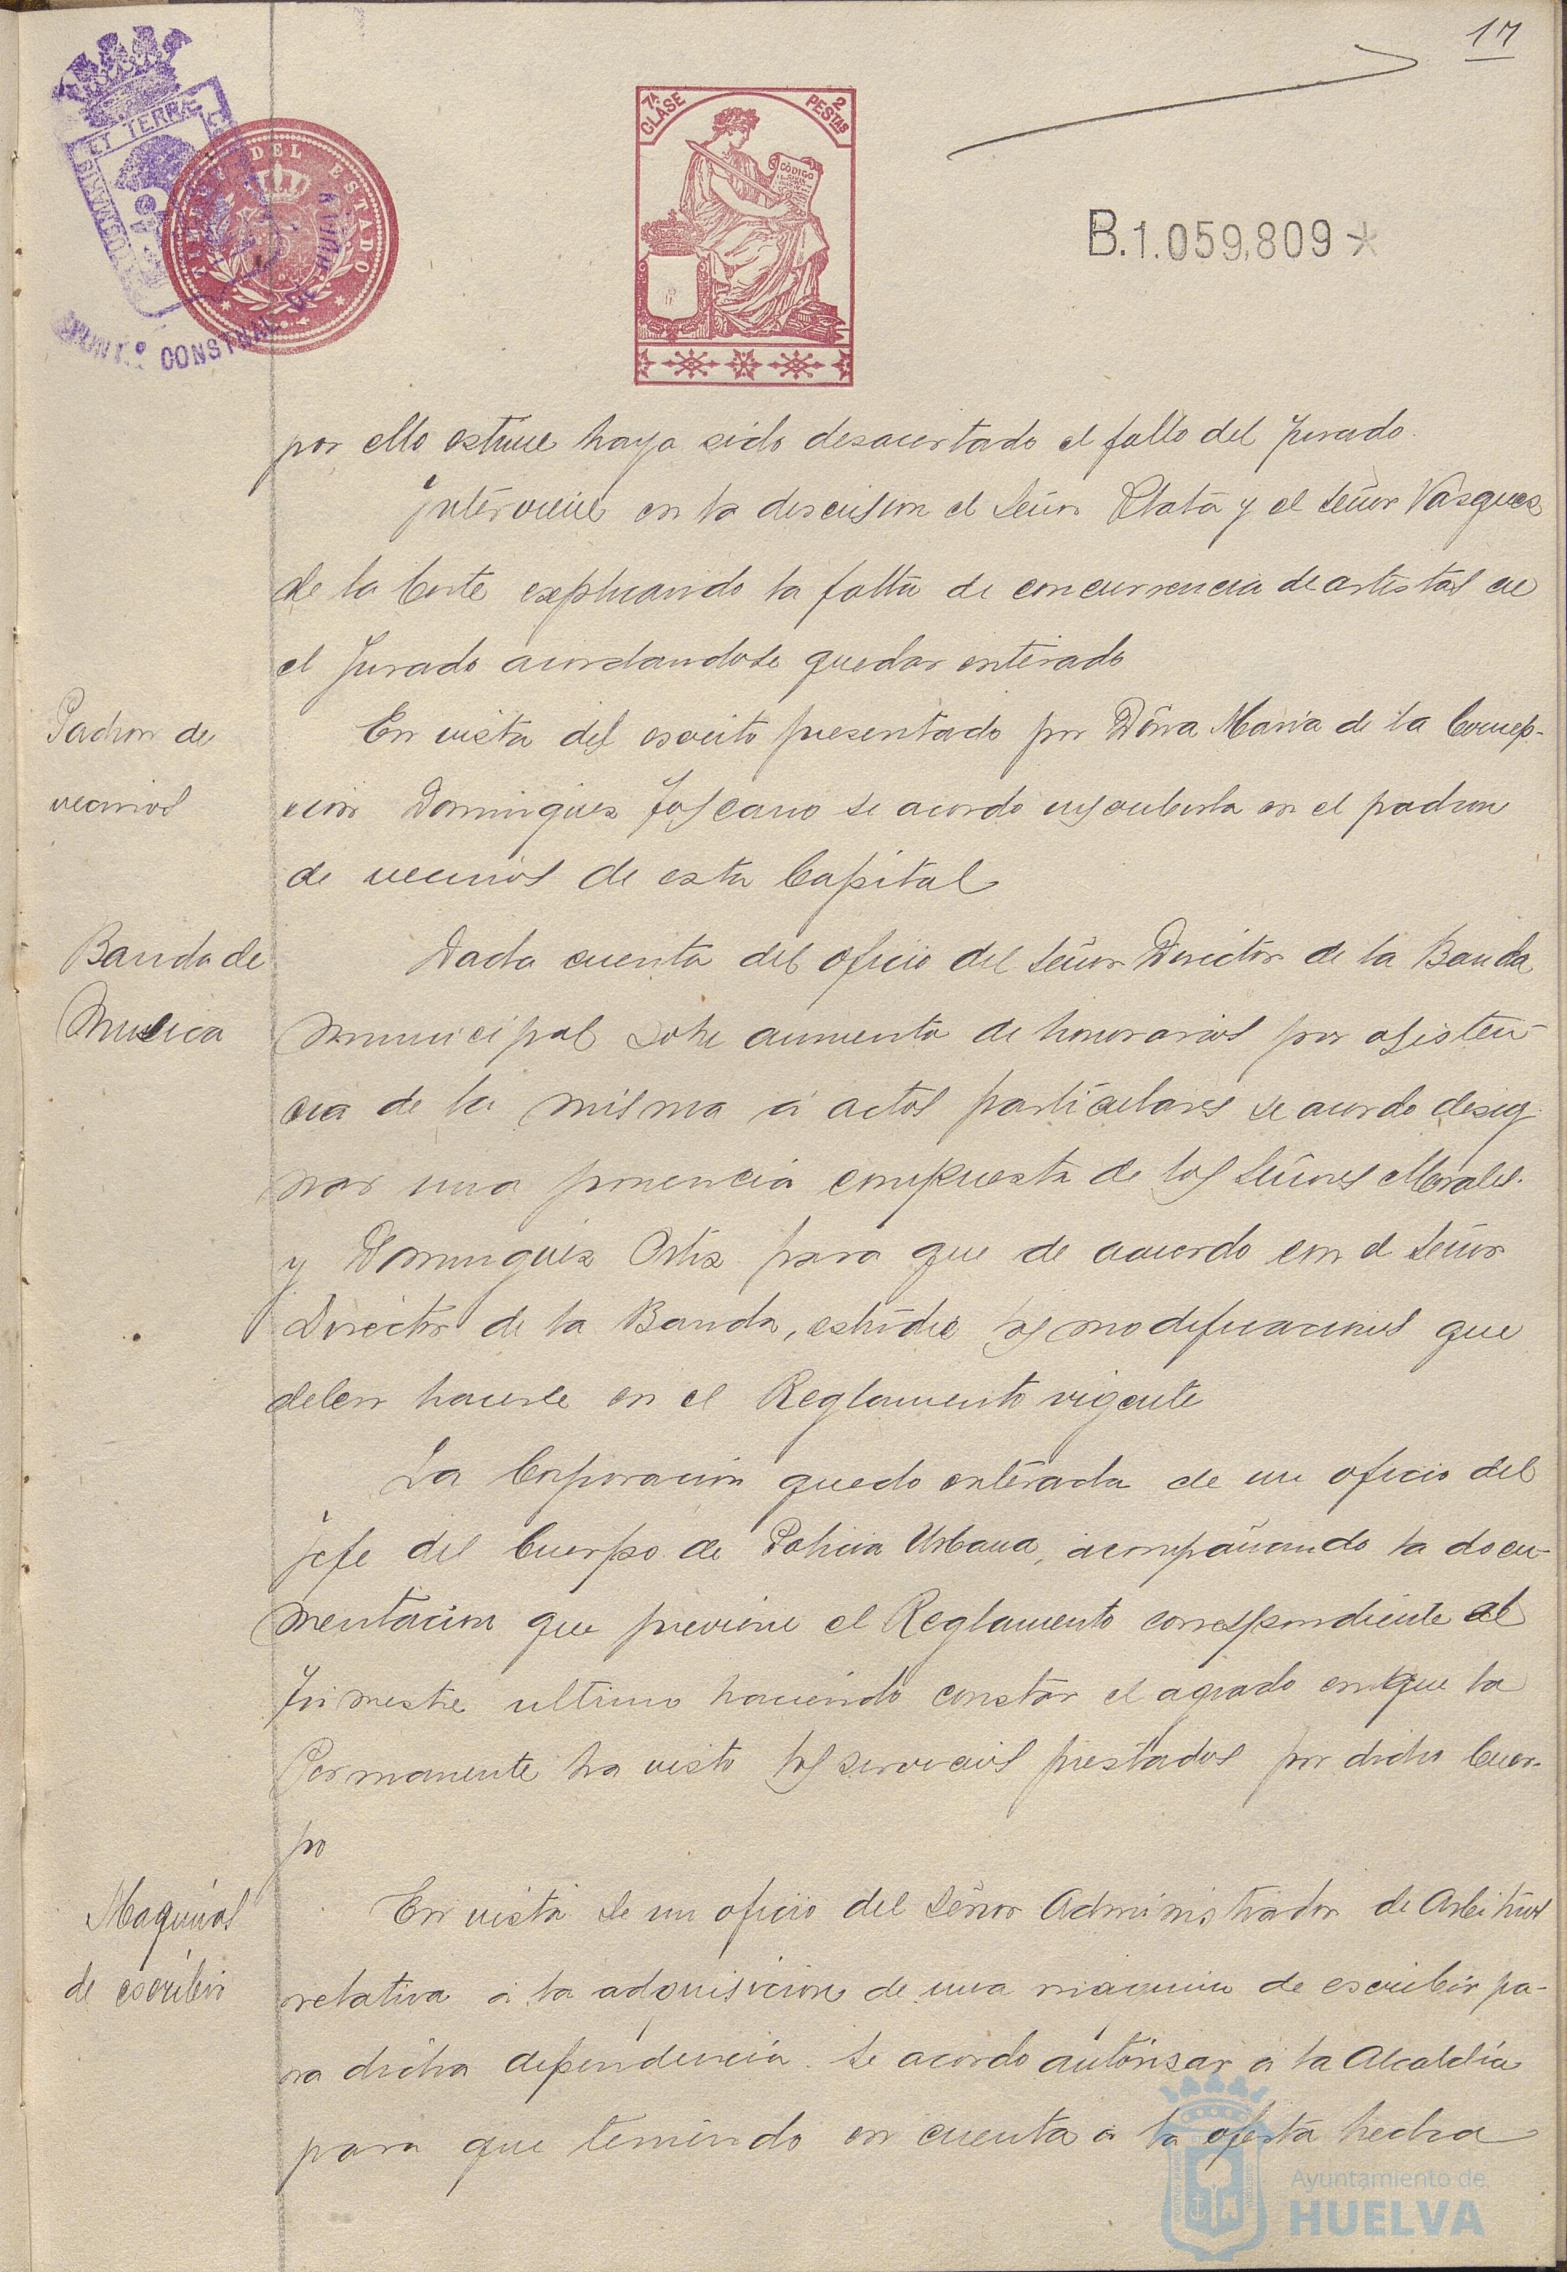 17
7ª CLASE
2 PESTAS
CÓDIGO
ET TERRÆ
TIMBRE DEL ESTADO
CONSTNAL DE HUELVA
B.1.059,809 *
por ello estime haya sido desacertado el fallo del Jurado.
Interviene en la discusion el Señor Plata y el Señor Vasquez
de la Corte explicando la falta de concurrencia de artistas en
el Jurado acordandose quedar enterado
Padron de
vecinos
En vista del escrito presentado por Doña Maria de la Concep-
cion Dominguez Toscano se acordo inscribirla en el padron
de vecinos de esta Capital
Banda de
Musica
Dada cuenta del oficio del Señor Director de la Banda
municipal sobre aumento de honorarios por asisten-
cia de la misma á actos particulares se acordo desig-
nar una ponencia compuesta de los Señores Morales
y Dominguez Ortiz para que de acuerdo con el Señor
Director de la Banda, estudie las modificaciones que
deben hacerse en el Reglamento vigente
La Corporacion quedo enterada de un oficio del
Jefe del Cuerpo de Policia Urbana, acompañando la docu-
mentacion que previene el Reglamento correspondiente al
trimestre ultimo haciendo constar el agrado en que la
Permanente ha visto los servicios prestados por dicho Cuer-
po
Maquinas
de escribir
En vista de un oficio del Señor Administrador de Arbitrios
relativa á la adquisicion de una maquina de escribir pa-
ra dicha dependencia se acordo autorisar á la Alcaldía
para que teniendo en cuenta á la oferta hecha
Ayuntamiento de
HUELVA